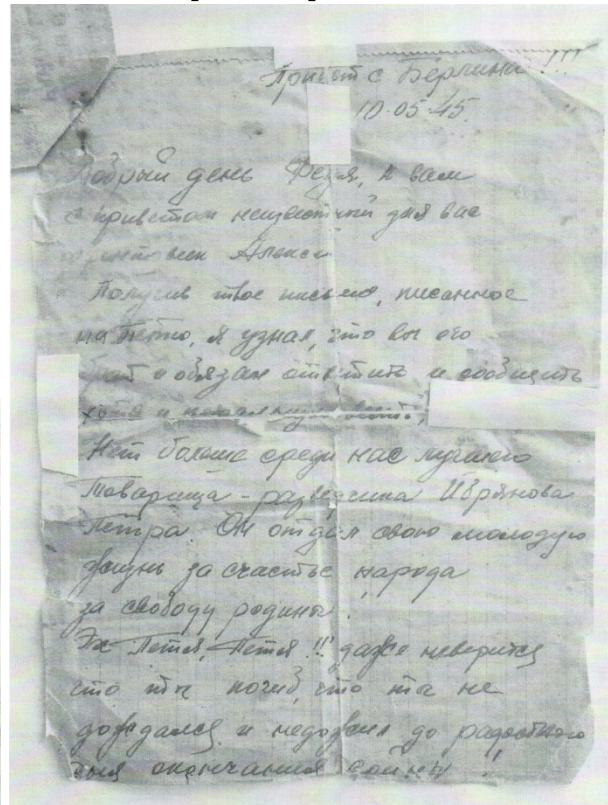 Привет с Берлина!!!
10.05.45.
Добрый день Федя, к вам
с приветом неизвестный для вас
Алексей
Получив твое письмо, писанное
на Петю, я узнал, что вы его
брат и обязан ответить и сообщить
хотя и печальную весть,
Нет больше среди нас лучшего
товарища - разведчика
Петра. Он отдал свою молодую
жизнь за счастье народа
за свободу родины.
Эх Петя, Петя!!! даже неверится
что ты погиб, что ты не
дождался и недожил до радостного
дня окончания войны!